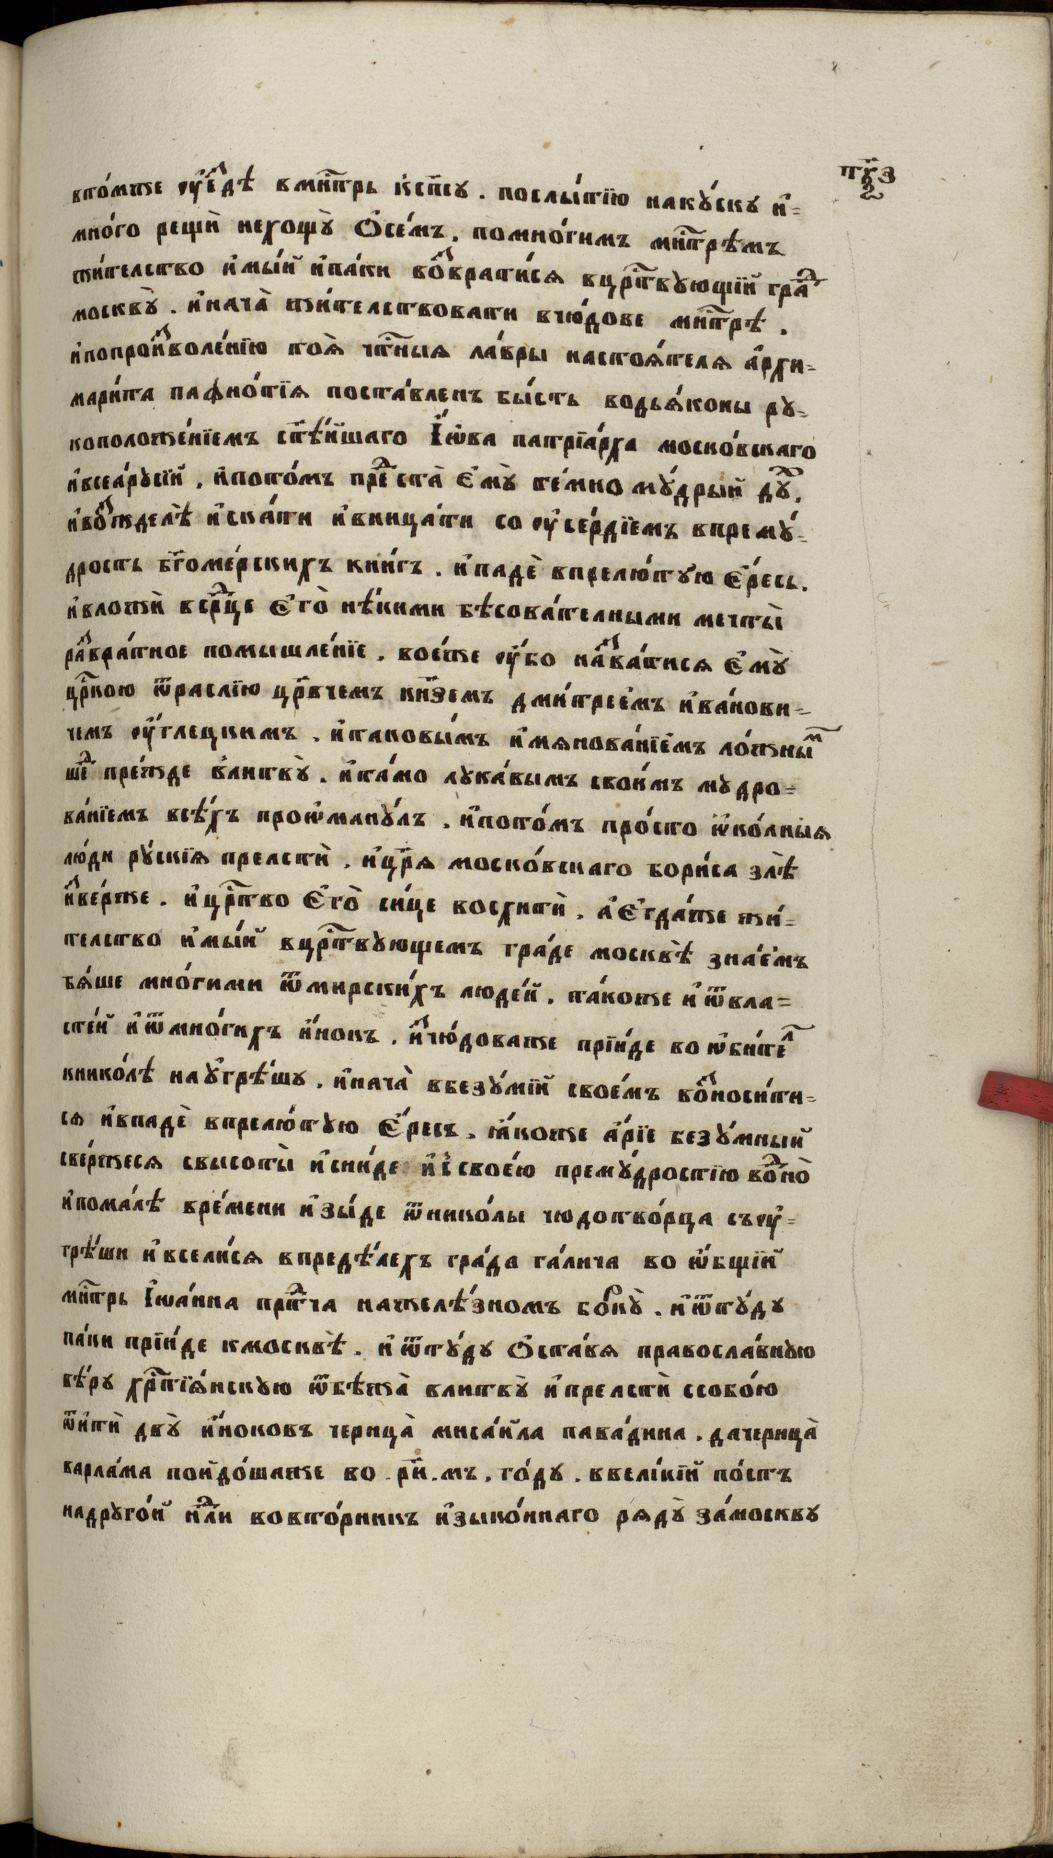 рѯз
2
вто́мже ᲂу҆е́здѣ вмн҃трь кспсꙋ. послы́шїю накꙋ́скꙋ и҆=
мно́го рещѝ нехощꙋ̀ Ѻ҆се́мъ. помно́гимъ мн҃трѣмъ
жи́тельство и҆мы́й и҆па́ки возврати́ся вцр҃твꙋющїй гра́д
москвꙋ̀. и҆нача̀ жи́тельствовати вчю́дове мн҃трѣ.
и҆попроизволе́нїю тоя̀ чтⷭ҇ныя ла́вры настоя́теля а҆рхи=
мари́та пафно́тїя поста́вленъ бы́сть водья́коны рꙋ=
коположе́нїемъ ст҃ѣ́йшаго І҆ѡ́ва патрїа́рха моско́вскаго
и҆всеа́рꙋсїй. и҆пото́мъ предста̀ Є҆мꙋ̀ те́мно мꙋ́дрый дꙋ́х.
и҆возжделѣ̀ и҆ска́ти и҆вница́ти со ᲂу҆се́рдїемъ впремꙋ́=
дрость бг҃оме́рскихъ кни́гъ. и҆падѐ впрелю́тꙋю Є҆́ресь.
и҆вложѝ всрⷣце Є҆гѡ̀ нѣ́кими бѣсова́телными мечты̀
развра́тное помышле́нїе. вое́же ᲂу҆́бо назва́тися Є҆мꙋ̀
црⷭ҇кою ѿраслїю цр҃вчемъ кн҃земъ дми́трее́мъ и҆ва́нови=
чемъ ᲂу҆́глецкимъ. и҆таковы́мъ и҆мянова́нїемъ ло́жным
ше́д пре́жде влитвꙋ̀. и҆та́мо лꙋка́вымъ свои́мъ мꙋдро=
ва́нїемъ всѣ́хъ проѡ҆манꙋ́лъ. и҆пото́мъ про́сто ѡ҆ко́лныя
лю́ди рꙋ́скїя прелстѝ. и҆цр҃я моско́вскаго бори́са злѣ̀
изве́рже. и҆ цр҃тво Є҆гѡ̀ си́це восхитѝ. а҆Є҆гда́же жи́=
тельство и҆мы́й вцр҃твꙋющемъ гра́де москвѣ̀ зна́емъ
бя́ше мно́гими ѿмирски́хъ люде́й. та́коже и҆ ѿвла=
сте́й и҆ ѿмно́гихъ и҆́нокъ. и҆счю́доваже прїи́де во ѡ҆би́тел
книко́лѣ наꙋ҆грѣ́шꙋ. и҆нача̀ вбезꙋ́мїй свое́мъ возноси́ти=
ся и҆впадѐ впрелю́тꙋю Є҆́ресь. ꙗ҆́коже а҆́рїе безꙋ́мный
све́ржеся свысоты̀ и҆сни́де и҆ з свое́ю премꙋ́дростїю во́дно̀
и҆пома́лѣ вре́мени и҆зы́де ѿнико́лы чюдотво́рца съᲂу҆=
грѣ́ши и҆ всели́ся впредѣ́лехъ гра́да га́лича во ѡ҆́бщїй
мн҃трь І҆ѡа́нна прⷣтча нажелѣ́зномъ бо́ркꙋ̀. и҆ ѿтꙋ́дꙋ
па́ки прїи́де кмосквѣ̀. и҆ ѿтꙋ́дꙋ Ѻ҆ста́вя правосла́внꙋю
вѣ́рꙋ хрⷭ҇тїя́нскꙋю ѿбѣжа̀ влитвꙋ̀ и҆прелстѝ ссобо́ю
ѿитѝ двꙋ̀ и҆́ноковъ черица̀ миса́йла пава́дина. дачерица̀
варла́ма пойдо́шаже во .рн҃и.мъ. го́дꙋ. ввели́кїй по́стъ
надрꙋго́й нⷣли вовто́рникъ и҆зыко́ннаго рядꙋ̀ за́москвꙋ